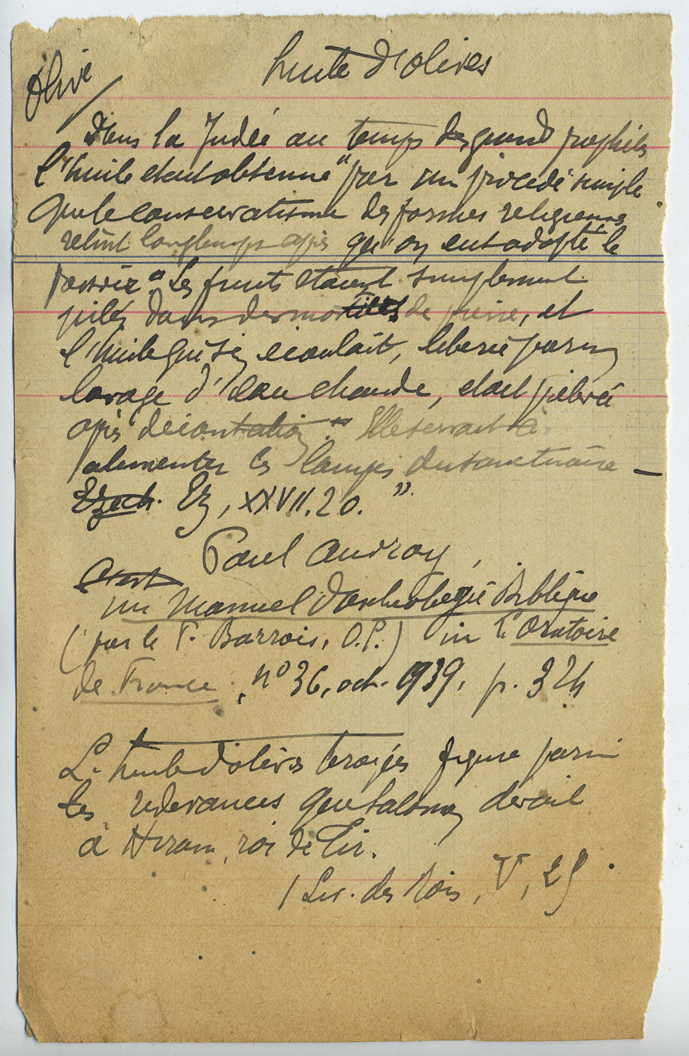 Olive
huile d'olives
Dans la Judée au temps des grands prophètes
l'huile était obtenue "par un procédé simple
que le conservatisme des formes religieuses
retint longtemps après qu'on eut adopté le
pressoir". Les fruits étaient simplement
pilés dans des mortiers de pierre, et
l'huile qui s'y écoulait, libérée par un
lavage d'eau chaude, était filtrée
après décantation. "Elle servait à
alimenter les lampes du sanctuaire –
Ezech. Ez, XXVII. 20. "
Paul Andray,
un Manuel d'archéologie Biblique
(par le P. Barrois, O.P.) in l'Oratoire
de France, n° 36, oct. 1939, p. 324
L'huile d'olives broyées figure parmi
les redevances que Salomon devait
à Hiram, roi de Tir.
I Liv. des Rois, V, 25